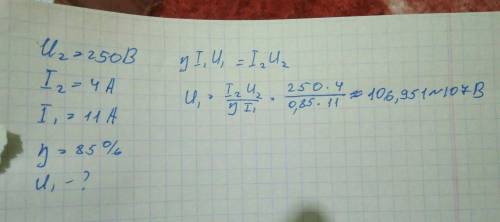 U₂ = 250В
I₂ = 4 А
I₁ = 11 А
η = 85%
U₁ - ?
η I₁ U₁ = I₂ U₂
U₁ = I₂ U₂ / η I₁ = 250 · 4 / 0,85 · 11 = 106,951 ≈ 107 В